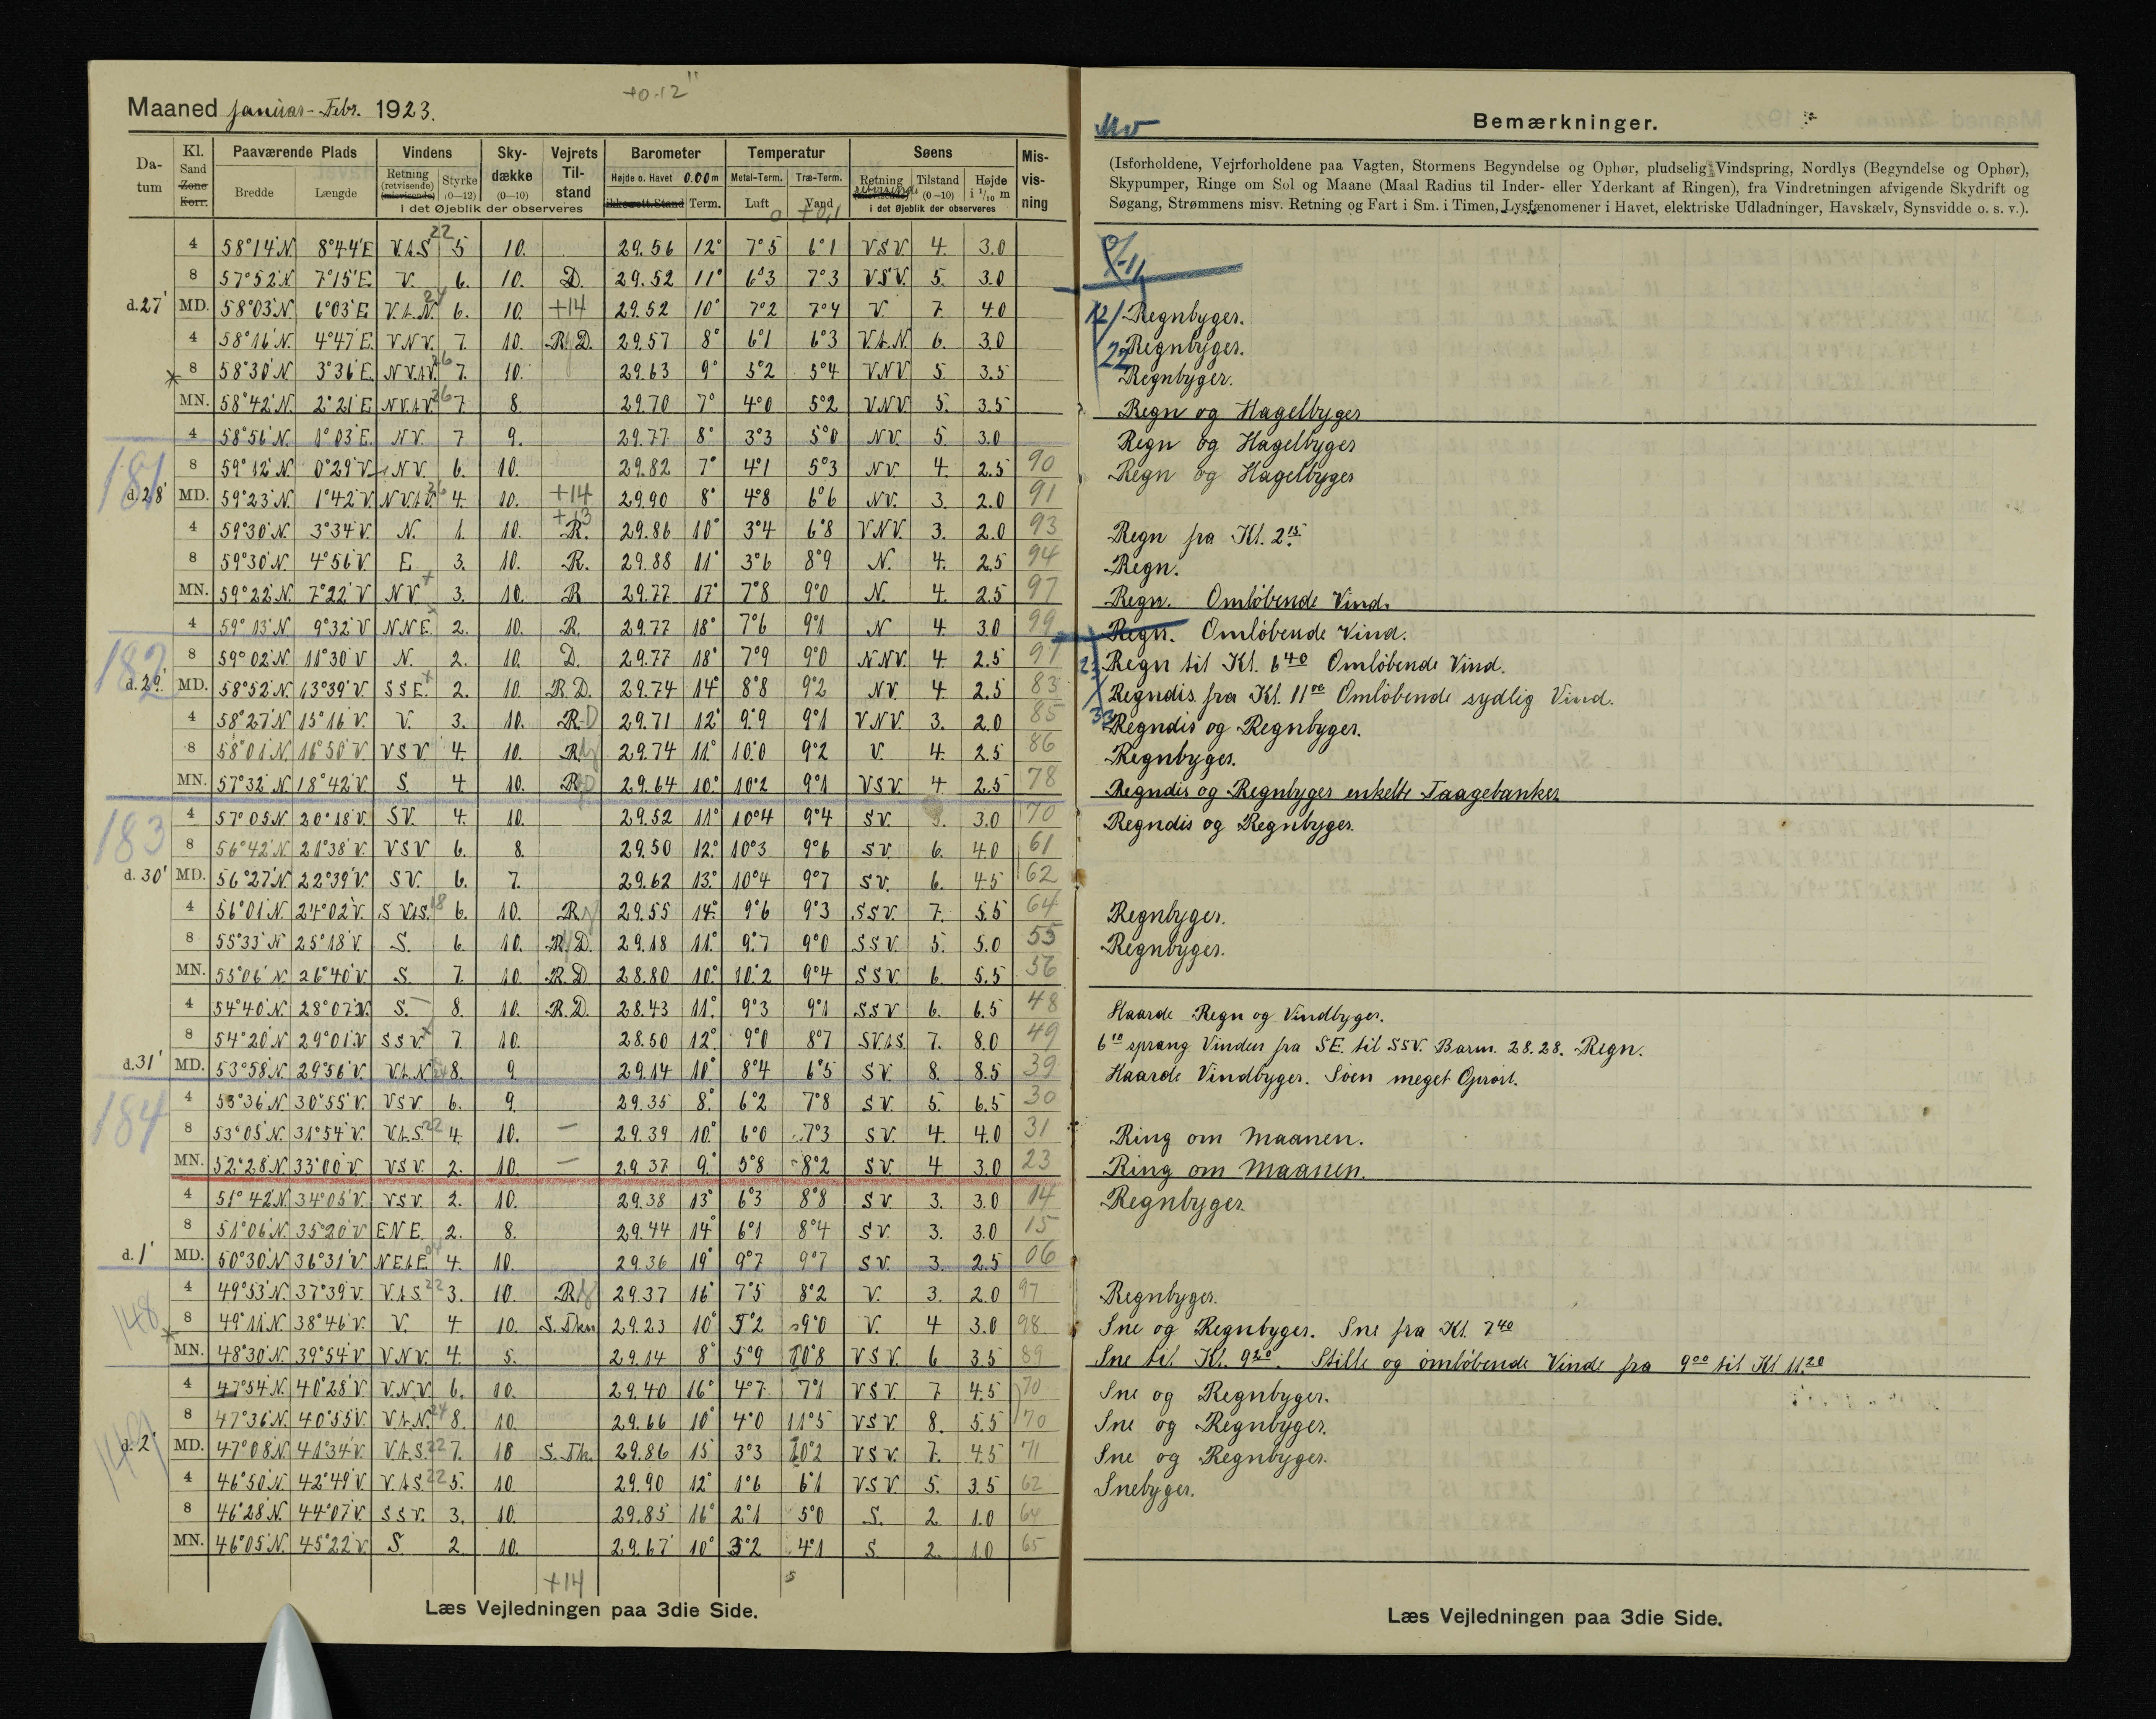 +0.12"
Maaned Januar-Febr. 1923.
Da-tum | Kl. Sand Zone Korr. | Paaværende Plads | Vindens | Sky-dække (0—10) | Vejrets Til-stand | Barometer | Temperatur | Søens | Mis-vis-ning
Bredde | Længde | Retning (retvisende) | Styrke (0—12) | Højde o. Havet 0.00 m | Term. | Metal-Term. Luft | Træ-Term. Vand | Retning retvisende | Tilstand (0—10) | Højde i 1/10 m
i det Øjeblik der observeres | i det Øjeblik der observeres
0 +0,1
4 58°14'N. 8°44'E V.t.S 22 5 10. 29.56 12° 7°5 6°1 VSV. 4. 3.0
8 57°52'N. 7°15'E. V. 6. 10. D. 29.52 11° 6°3 7°3 VSV. 5. 3.0
d.27' MD. 58°03'N. 6°03'E. V.t.N. 24 6. 10. +14 29.52 10° 7°2 7°4 V. 7. 4.0
4 58°16'N. 4°47'E. VNV. 7. 10. R.D. 29.57 8° 6°1 6°3 V.t.N. 6. 3.0
8 58°30'N. 3°36'E. NV.t.V. 26 7. 10. 29.63 9° 5°2 5°4 VNV. 5. 3.5
MN. 58°42'N. 2°21'E NV.t.V. 26 7 8. 29.70 7° 4°0 5°2 VNV. 5. 3.5
4 58°56'N. 1°03'E. NV. 7 9. 29.77 8° 3°3 5°0 NV. 5. 3.0
181 8 59°12'N. 0°29'V. NV. 6. 10. 29.82 7° 4°1 5°3 NV. 4. 2.5 90
d.28' MD. 59°23'N. 1°42'V. NV.t.V. 26 4. 10. +14 29.90 8° 4°8 6°6 NV. 3. 2.0 91
4 59°30'N. 3°34'V. N. 1. 10. +13 R. 29.86 10° 3°4 6°8 VNV. 3. 2.0 93
8 59°30'N. 4°56'V. E 3. 10. R. 29.88 11° 3°6 8°9 N. 4. 2.5 94
MN. 59°22'N. 7°22'V NV 3. 10. R 29.77 17° 7°8 9°0 N. 4. 2.5 97
4 59°13'N 9°32'V NNE. 2. 10. R. 29.77 18° 7°6 9°1 N 4. 3.0 99
182 8 59°02'N. 11°30'V N. 2. 10. D. 29.77 18° 7°9 9°0 NNV. 4. 2.5 91
d.29' MD. 58°52'N. 13°39'V. SSE. 2. 10. R.D. 29.74 14° 8°8 9°2 NV. 4 2.5 83
4 58°27'N 15°16'V. V. 3. 10. R-D 29.71 12° 9°9 9°1 VNV. 3. 2.0 85
8 58°01'N. 16°50'V. VSV. 4. 10. R. 29.74 11° 10°0 9°2 V. 4. 2.5 86
MN. 57°32'N. 18°42'V. S. 4 10. R 29.64 10° 10°2 9°1 VSV. 4 2.5 78
4 57°05'N. 20°18'V. SV. 4. 10. 29.52 11° 10°4 9°4 SV. 3.0 70
183 8 56°42'N. 21°38'V. VSV 6. 8. 29.50 12° 10°3 9°6 SV. 6. 4.0 61
d.30' MD. 56°27'N 22°39'V. SV. 6. 7. 29.62 13° 10°4 9°7 SV. 6. 4.5 62
4 56°01'N 24°02'V. SV.t.S. 18 6. 10. R 29.55 14° 9°6 9°3 SSV. 7. 5.5 64
8 55°33'N 25°18'V. S. 6. 10. R.D. 29.18 11° 9°7 9°0 SSV. 5. 5.0 55
MN. 55°06'N. 26°40'V. S. 7. 10. R.D 28.80 10° 10°2 9°4 SSV. 6. 5.5 56
4 54°40'N. 28°07'V. S. 8. 10. R.D. 28.43 11° 9°3 9°1 SSV 6. 6.5 48
8 54°20'N 29°01'V SSV 7 10. 28.50 12° 9°0 8°7 SV.t.S. 7. 8.0 49
d.31' MD. 53°58'N. 29°56'V. V.t.N 8. 9. 29.14 10° 8°4 6°5 SV. 8. 8.5 39
4 53°36'N 30°55'V. VSV. 6. 9. 29.35 8° 6°2 7°8 SV. 5. 6.5 30
184 8 53°05'N. 31°54'V. V.t.S. 22 4. 10. — 29.39 10° 6°0 7°3 SV. 4. 4.0 31
MN. 52°28'N 33°00'V. VSV. 2. 10. — 29.37 9° 5°8 8°2 SV. 4 3.0 23
4 51°42'N. 34°05'V. VSV. 2. 10. 29.38 13° 6°3 8°8 SV. 3. 3.0 14
8 51°06'N. 35°20'V ENE. 2. 8. 29.44 14° 6°1 8°4 SV. 3. 3.0 15
d.1' MD. 50°30'N. 36°31'V. NE.t.E. 04 4. 10. 29.36 19° 9°7 9°7 SV. 3. 2.5 06
4 49°53'N. 37°39'V. V.t.S. 22 3. 10. R 29.37 16° 7°5 8°2 V. 3. 2.0 97
148 8 49°11'N. 38°46'V. V. 4. 10. S.Tkn 29.23 10° 5°2 9°0 V. 4 3.0 98
MN. 48°30'N. 39°54'V VNV. 4. 5. 29.14 8° 5°9 10°8 VSV. 6 3.5 89
4 47°54'N. 40°28'V V.N.V. 6. 10. 29.40 16° 4°7 7°1 VSV. 7 4.5 70
8 47°36'N. 40°55'V. V.t.N. 24 8. 10. 29.66 10° 4°0 11°5 VSV. 8. 5.5 70
149 d.2' MD. 47°08'N. 41°34'V. V.t.S. 22 7. 10 S.Tk. 29.86 15° 3°3 10°2 VSV. 7. 4.5 71
4 46°50'N. 42°49'V. V.t.S. 22 5. 10. 29.90 12° 1°6 6°1 VSV. 5. 3.5 62
8 46°28'N. 44°07'V. SSV. 3. 10. 29.85 16° 2°1 5°0 S. 2. 1.0 64
MN. 46°05'N. 45°22'V. S. 2. 10. 29.67 10° 3°2 4°1 S 2. 1.0 65
+14
Læs Vejledningen paa 3die Side.
Bemærkninger.
(Isforholdene, Vejrforholdene paa Vagten, Stormens Begyndelse og Ophør, pludselig Vindspring, Nordlys (Begyndelse og Ophør),
Skypumper, Ringe om Sol og Maane (Maal Radius til Inder- eller Yderkant af Ringen), fra Vindretningen afvigende Skydrift og
Søgang, Strømmens misv. Retning og Fart i Sm. i Timen, Lysfænomener i Havet, elektriske Udladninger, Havskælv, Synsvidde o. s. v.).
12/ Regnbyger.
22 Regnbyger.
Regnbyger.
Regn og Hagelbyger
Regn og Hagelbyger
Regn og Hagelbyger
Regn fra Kl. 2 15
Regn.
Regn. Omløbende Vind.
Regn. Omløbende Vind.
Regn til Kl. 6 40 Omløbende Vind.
Regndis fra Kl. 11 00 Omløbende sydlig Vind.
33 Regndis og Regnbyger.
Regnbyger.
Regndis og Regnbyger enkelte Taagebanker
Regndis og Regnbyger.
Regnbyger.
Regnbyger.
Haarde Regn og Vindbyger.
6 10 sprang Vinden fra SE. til SSV. Barm. 28.28. Regn.
Haarde Vindbyger. Søen meget Oprørt.
Ring om Maanen.
Ring om Maanen.
Regnbyger.
Regnbyger.
Sne og Regnbyger. Sne fra Kl. 7 40
Sne til Kl. 9 20. Stille og omløbende Vinde fra 9 00 til Kl 11.20
Sne og Regnbyger.
Sne og Regnbyger.
Sne og Regnbyger.
Snebyger.
Læs Vejledningen paa 3die Side.